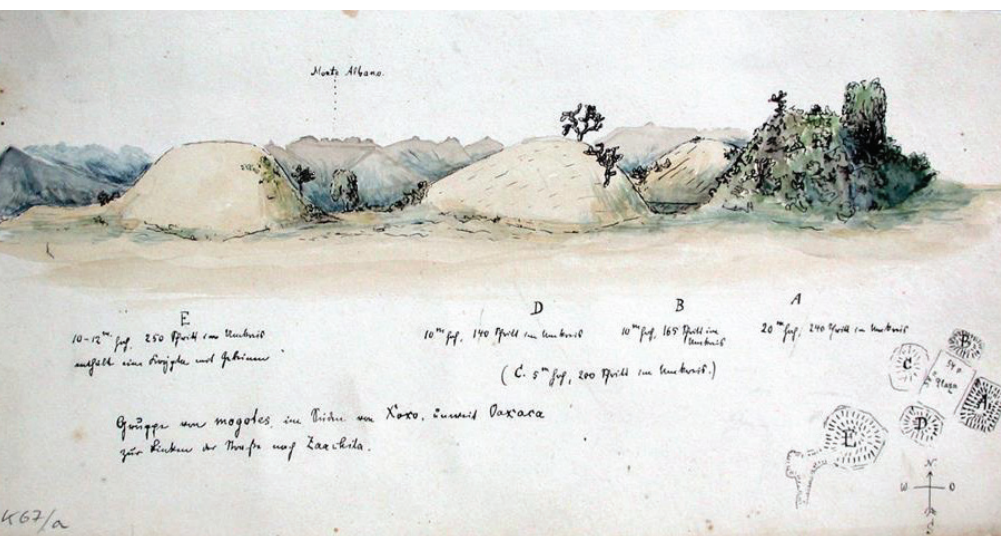 Monte Albano.
E
10-12 m hoch, 250 Schritt im Umkreis
enthält eine Krypta mit Gebeinen
D
10 m hoch, 140 Schritt im Umkreis
B
10 m hoch, 165 Schritt im
Umkreis
A
20 m hoch, 240 Schritt im Umkreis
(C. 5 m hoch, 200 Schritt im Umkreis.)
Gruppe von mogotes, im Süden von Xoxo, unweit Oaxaca
zur Linken der Straße nach Zaachila.
B
C
Plaza
A
D
E
N
W O
S
K67/a